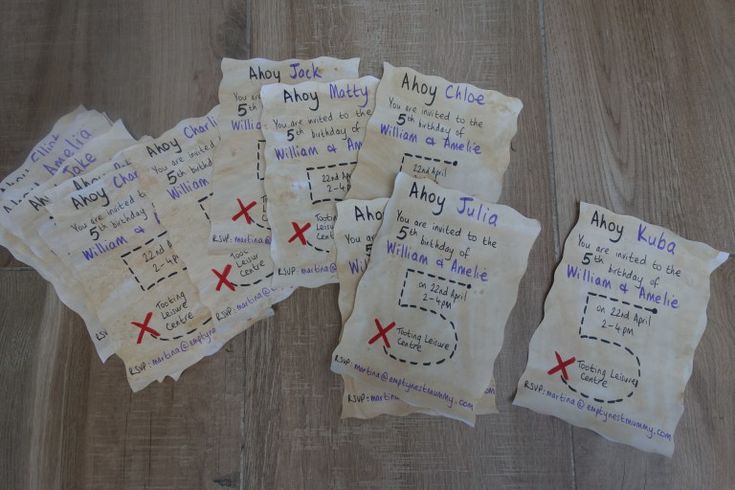 Elliot
Amelia
Jake
Ahoy Char
You are invited
5th birthday
William & A
22nd A
2-4p
Tooting
Leisure
Centre
RSVP: martina@emptyne
Ahoy Charli
You are in
5th birt
William
Ahoy Jack
You are invited
5th birthday
William
Toot
Leisur
Cent
RSVP: martina@
Ahoy Matty
You are invited to
5th birthday of
William & Amelie
22nd April
2-4
Tooting
Leisure
Centre
RSVP: martina@em
Ahoy Chloe
You are invited to the
5th birthday of
William & Amelie
22nd April
2-4pm
Ahoy Julia
You are invited to the
5th birthday of
William & Amelie
on 22nd April
2-4pm
Tooting Leisure
Centre
RSVP: martina@emptynestmummy.com
Ahoy Kuba
You are invited to the
5th birthday of
William & Amelie
on 22nd April
2-4pm
Tooting Leisure
Centre
RSVP: martina@emptynestmummy.com